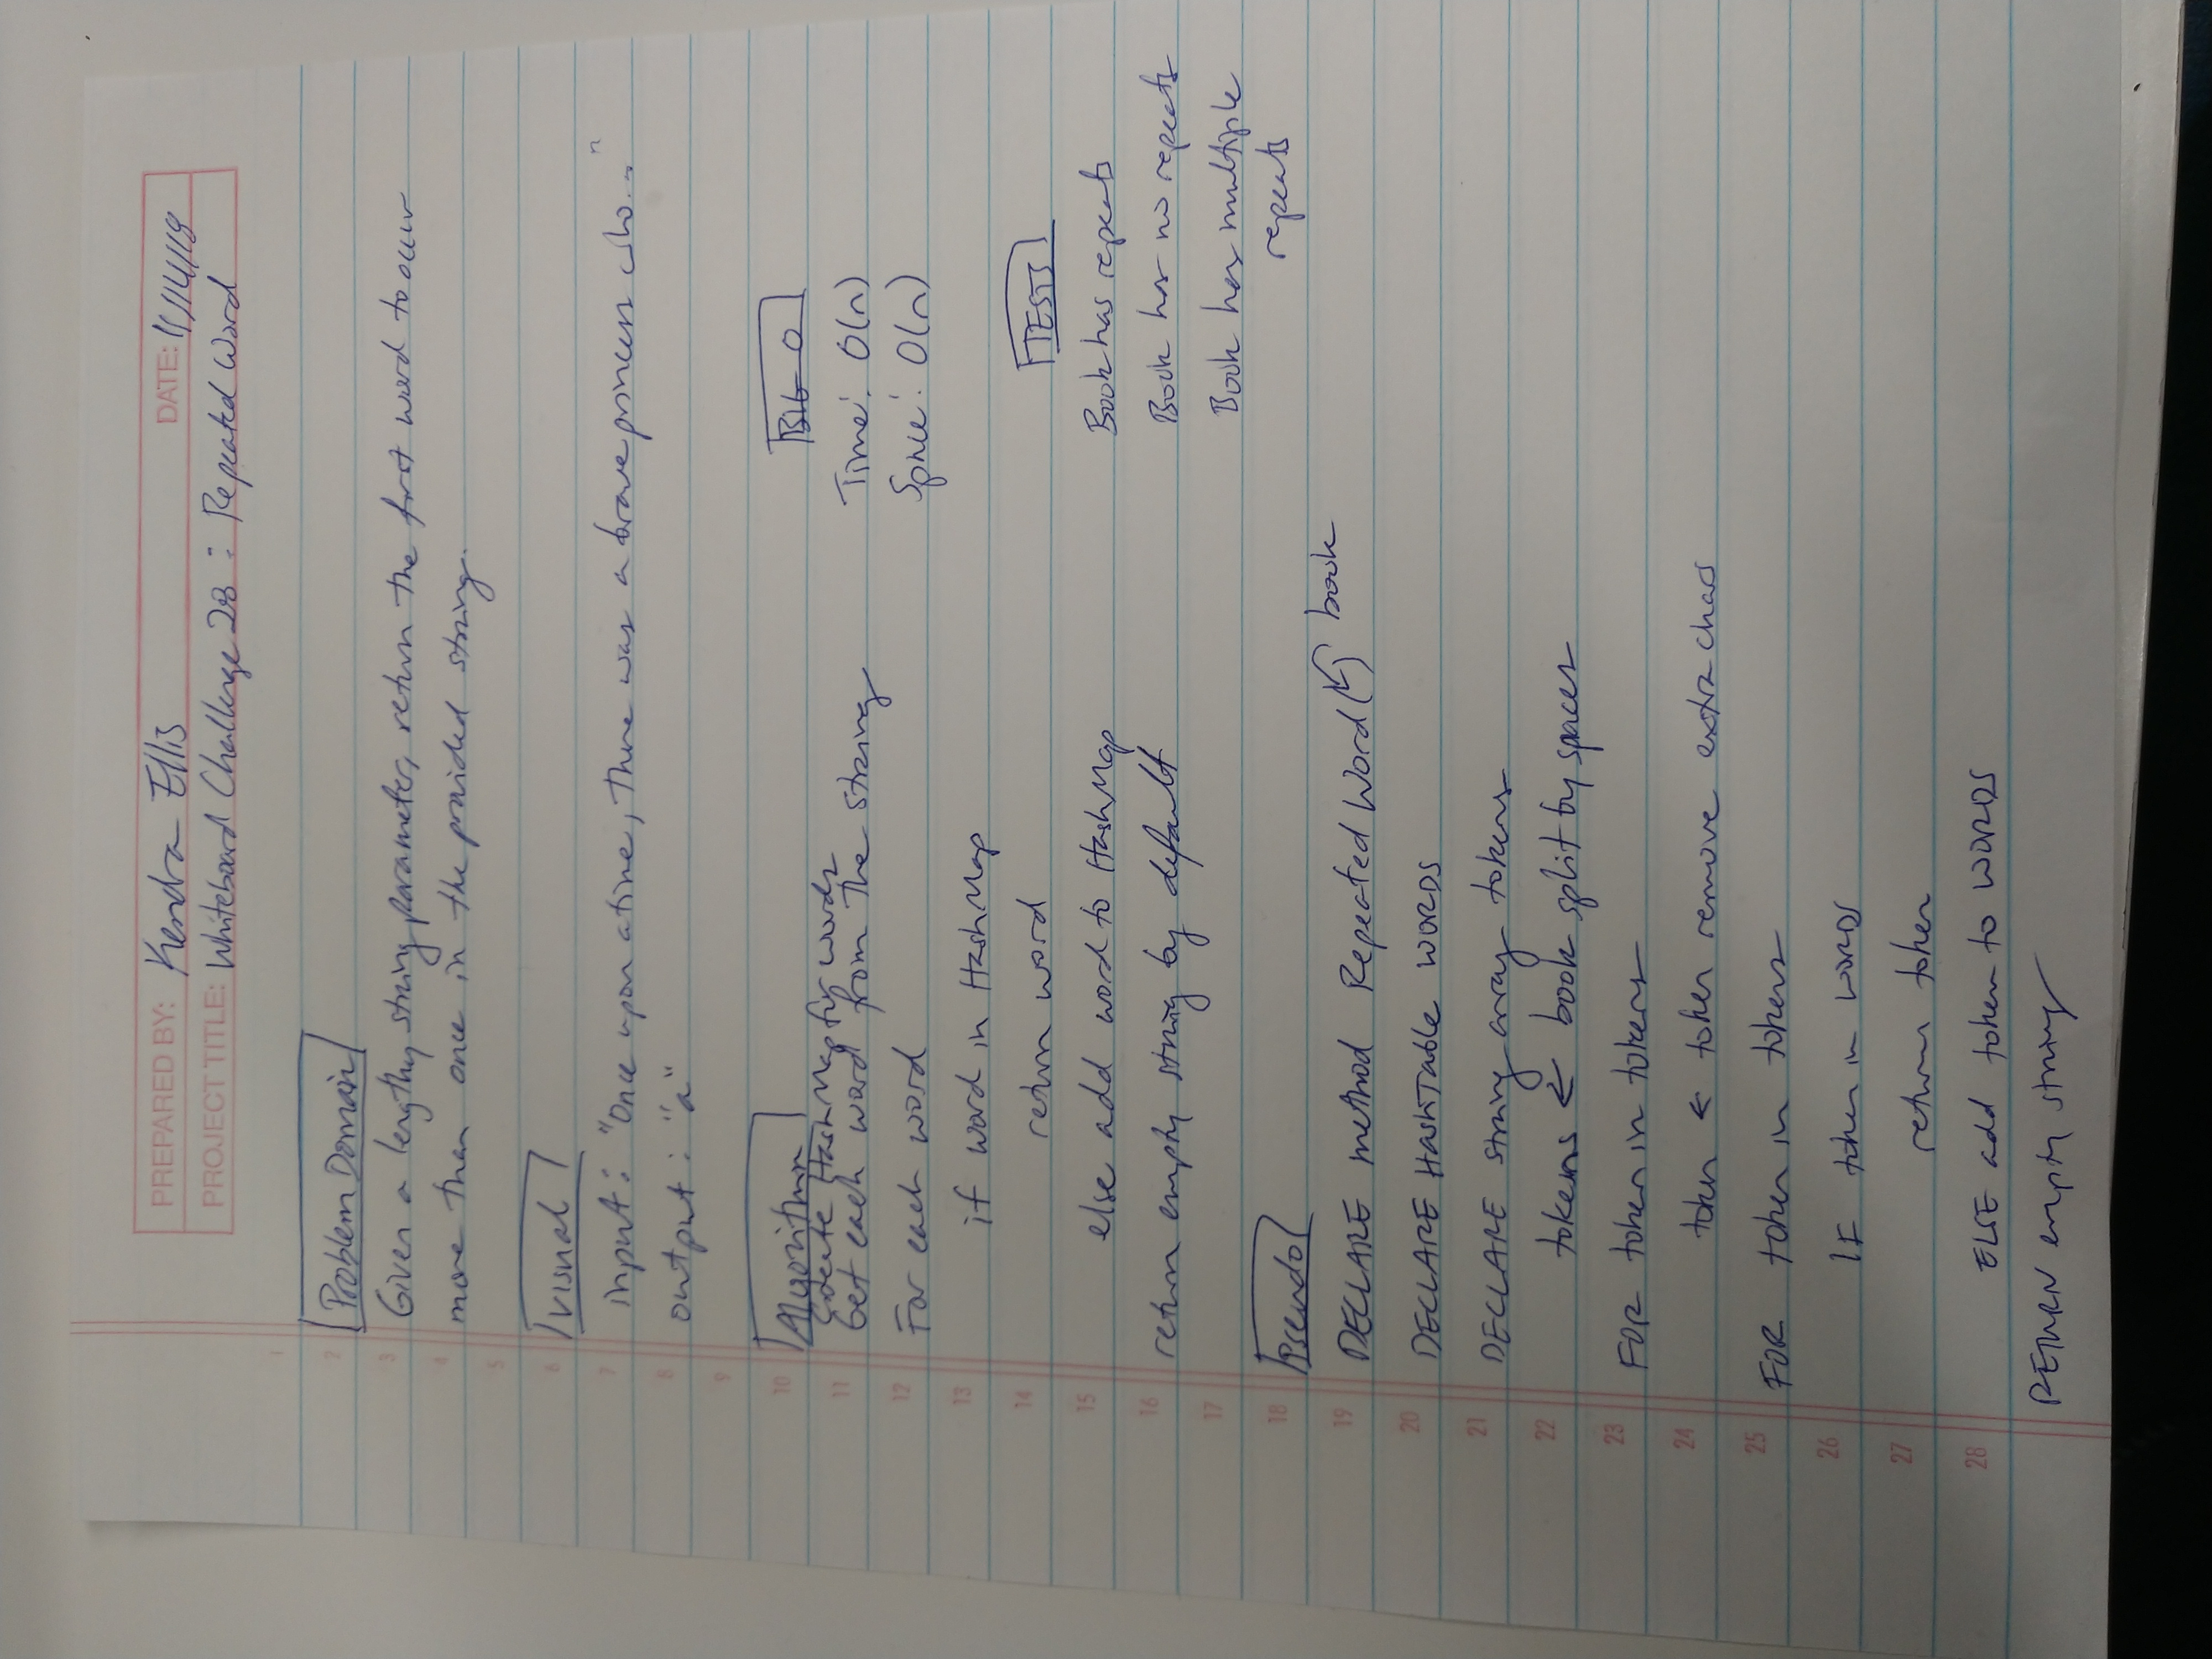 PREPARED BY: Kendra Ellis DATE: 11/14/18
PROJECT TITLE: Whiteboard Challenge 28 : Repeated Word
1
2 Problem Domain
3 Given a lengthy string parameter, return the first word to occur
4 more than once in the provided string.
5
6 Visual
7 input: "Once upon a time, there was a brave princess who..."
8 output: "a"
9
10 Algorithm
Create HashMap for words
11 Get each word from the string
12 For each word
13 if word in HashMap
14 return word
15 else add word to HashMap
16 return empty string by default
17
BIG O
Time: O(n)
Space: O(n)
TESTS
Book has repeats
Book has no repeats
Book has multiple
repeats
18 Pseudo
19 DECLARE method Repeated Word() book
20 DECLARE HashTable WORDS
21 DECLARE string array tokens
22 tokens ← book split by spaces
23 FOR token in tokens
24 token ← token remove extra chars
25 FOR token in tokens
26 IF token in WORDS
27 return token
28 ELSE add token to WORDS
RETURN empty string